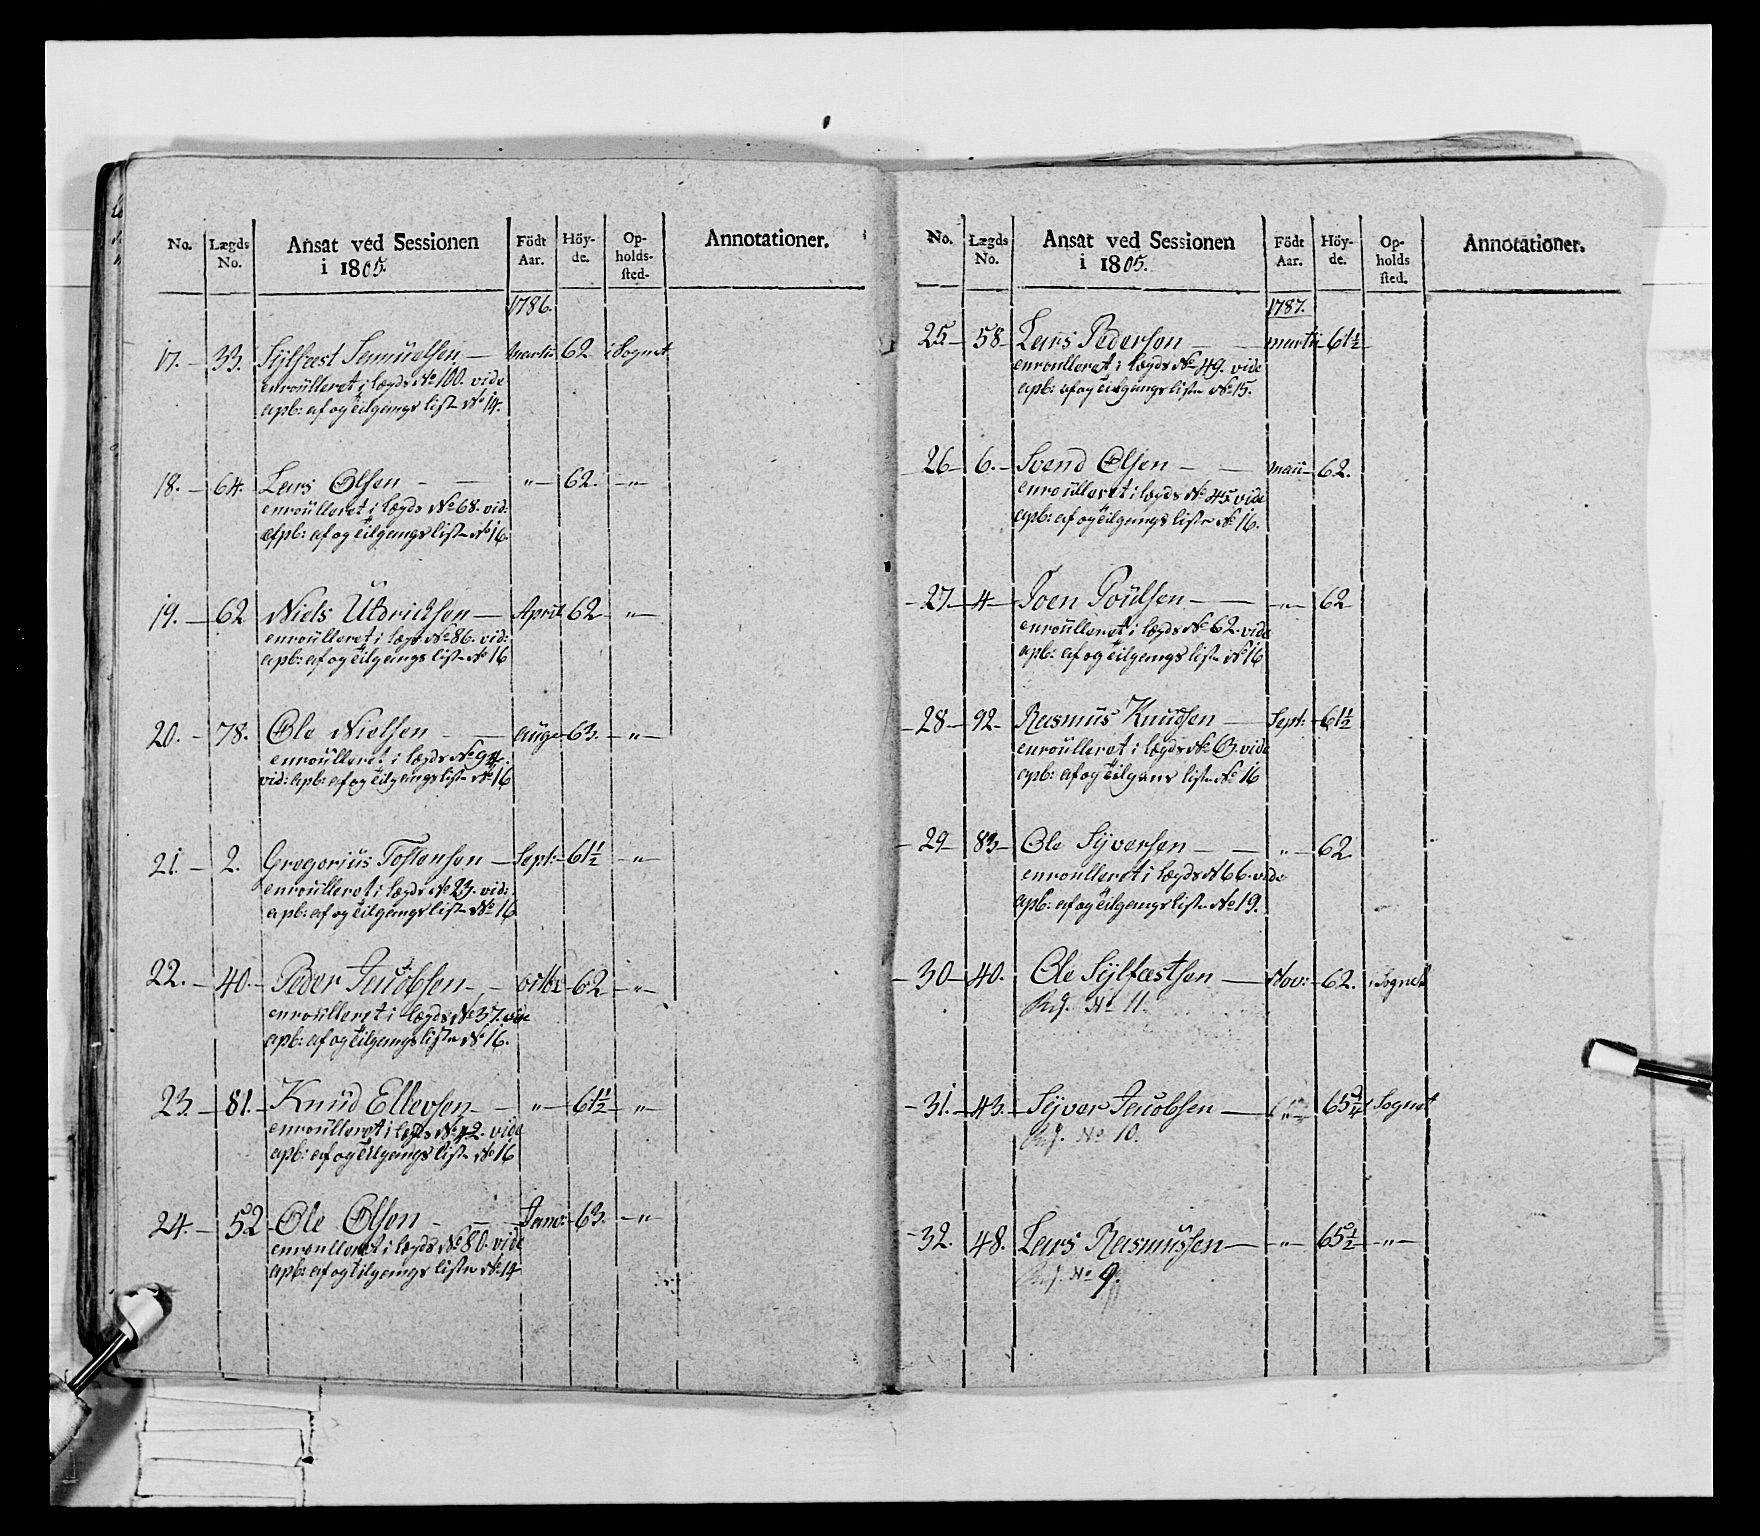 No. Lægds No. Ansat ved Sessionen i 1805. Födt Aar. Höy-de. Op-holds-sted. Annotationer.
1786.
17. 33. Sylfæst Samuelsen martii 62 i Sognet
enroulleret i lægds No 100. vide
apb: af og tilgangs liste No 14.
18. 64. Lars Olsen " 62. "
enroulleret i lægds No 68. vid:
apb: af og tilgangs liste No 16.
19. 62 Niels Uldrichsen April 62 "
enroulleret i lægds No 86. vid:
apb: af og tilgangs liste No 16
20. 78. Ole Nielsen aug 63. "
enroulleret i lægds No 94.
vid: apb: af og tilgangs liste No 16
21. 2. Gregorius Tostensen Sept: 61 1/2 "
enroulleret i lægds No 23. vid:
apb: af og tilgangs liste No 16
22. 40. Peder Jacobsen octbr 62 "
enroulleret i lægds No 37. vide
apb: af og tilgangs liste No 16.
23. 81. Knud Ellevsen " 61 1/2 "
enroulleret i lægds No 42. vide
apb: af og tilgangs liste No 16
24. 52 Ole Olsen Janv: 63. "
enroulleret i lægds No 80. vide
apb: af og tilgangs liste No 14
No. Lægds No. Ansat ved Sessionen i 1805. Födt Aar. Höy-de. Op-holds sted. Annotationer.
1787.
25 58 Lars Pedersen martii 61 1/2
enroulleret i lægds No 49. vide
apb: af og tilgangs liste No 15.
26 6. Svend Olsen maii 62.
enroulleret i lægds No 45. vide
apb: af og tilgangs liste No 16.
27 4 Joen Poulsen " 62
enroulleret i lægds No 62. vide
apb: af og tilgangs liste No 16
28 92 Rasmus Knudsen Sept: 61 1/2
enroulleret i lægds No 63. vide
apb: af og tilgans liste No 16
29 83 Ole Syversen " 62
enroulleret i lægds N 66. vide
apb: af og tilgangs liste No 19.
30 40. Ole Sylfæstsen Nov: 62. i Sognet
No 11.
31. 43. Syver Jacobsen 65 3/4 i Sognet
No 10.
32. 48. Lars Rasmussen " 65 1/2 "
No 9.